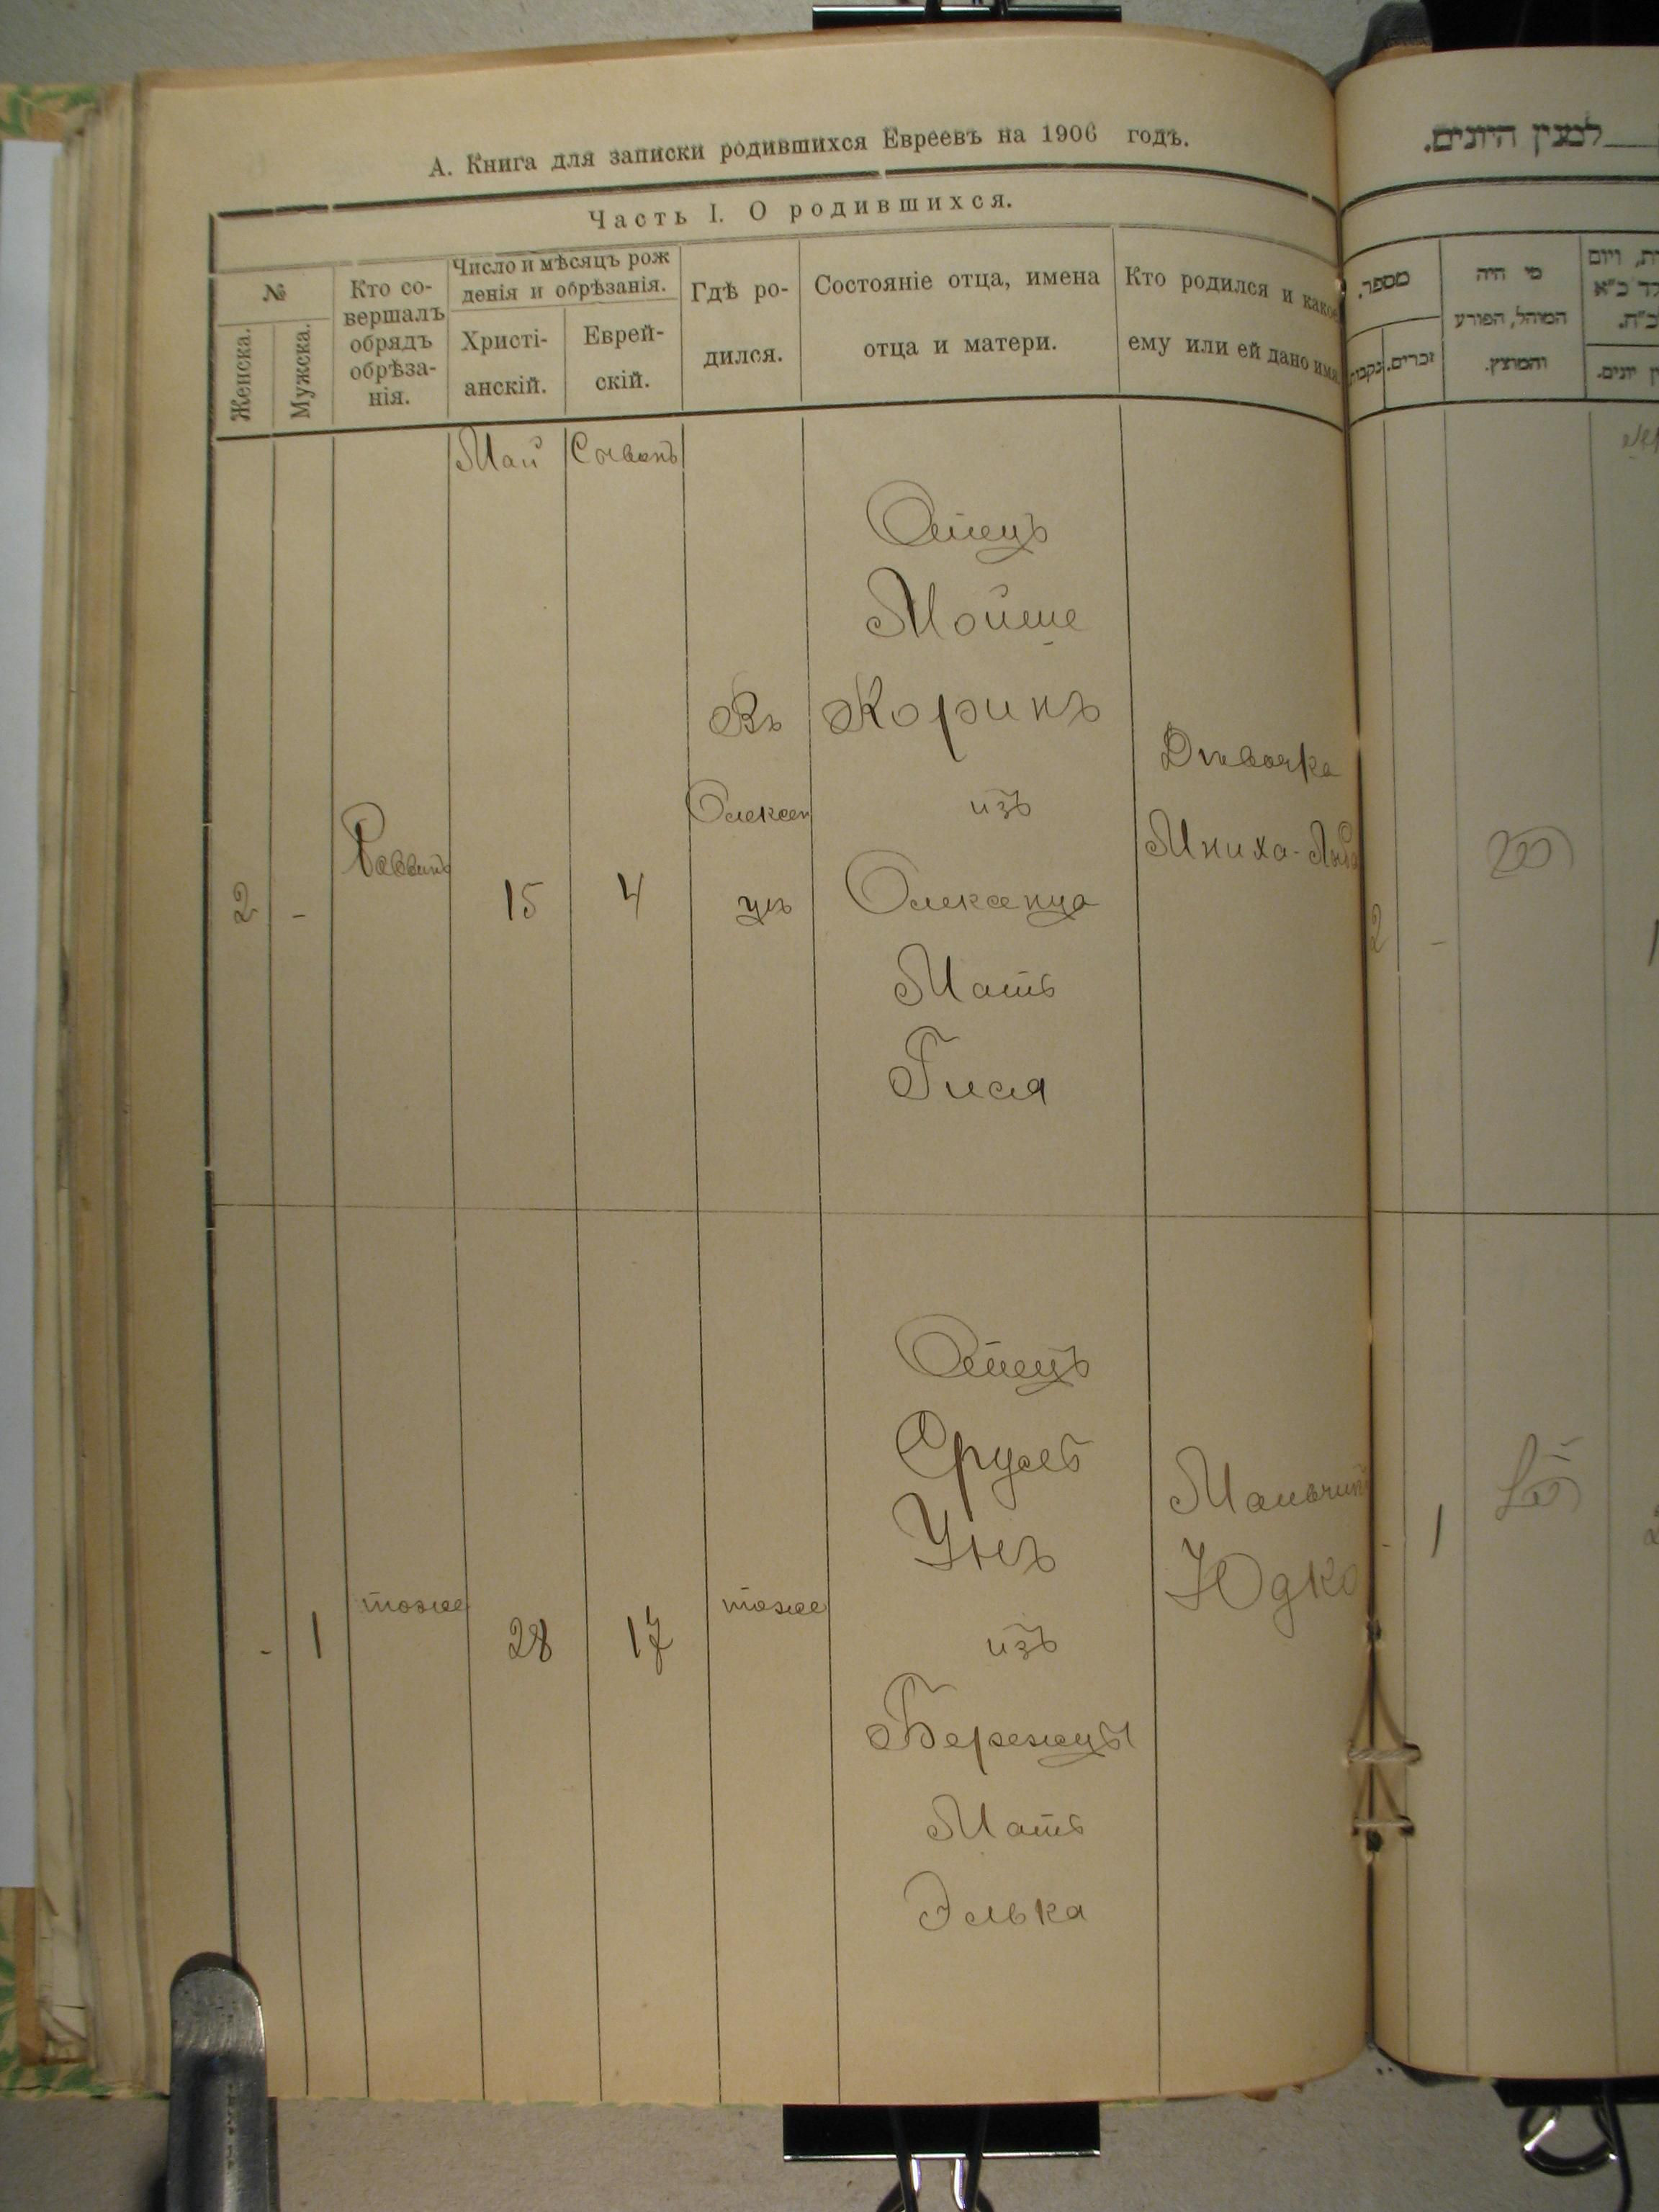 А. Книга для записки родившихся Евреевъ на 1906 годъ.
Часть I. О родившихся.
№
Женска.
Мужска.
Кто со-
вершалъ
обрядъ
обрѣза-
нія.
Число и мѣсяцъ рож
денія и обрѣзанія.
Христі-
анскій.
Еврей-
скій.
Гдѣ ро-
дился.
Состояніе отца, имена
отца и матери.
Кто родился и какое
ему или ей дано имя.
Май
Сиванъ
2
-
Раввинъ
15
4
Въ
Олексен
цѣ
Отецъ
Мойше
Коринъ
изъ
Олексенца
Мать
Гися
Дѣвочка
-
1
тоже
28
17
тоже
Отецъ
Сруль
Укъ
изъ
Бережцы
Мать
Элька
Мальчикъ
Юдко
למנין היונים.
מספר.
זכרים.
נקבות
מי היה
המוהל, הפורע
והמוצץ.
2
-
-
1